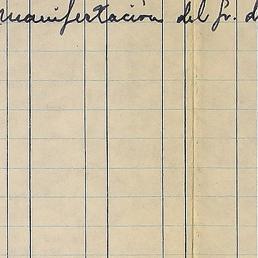 manifestación del Sr. d